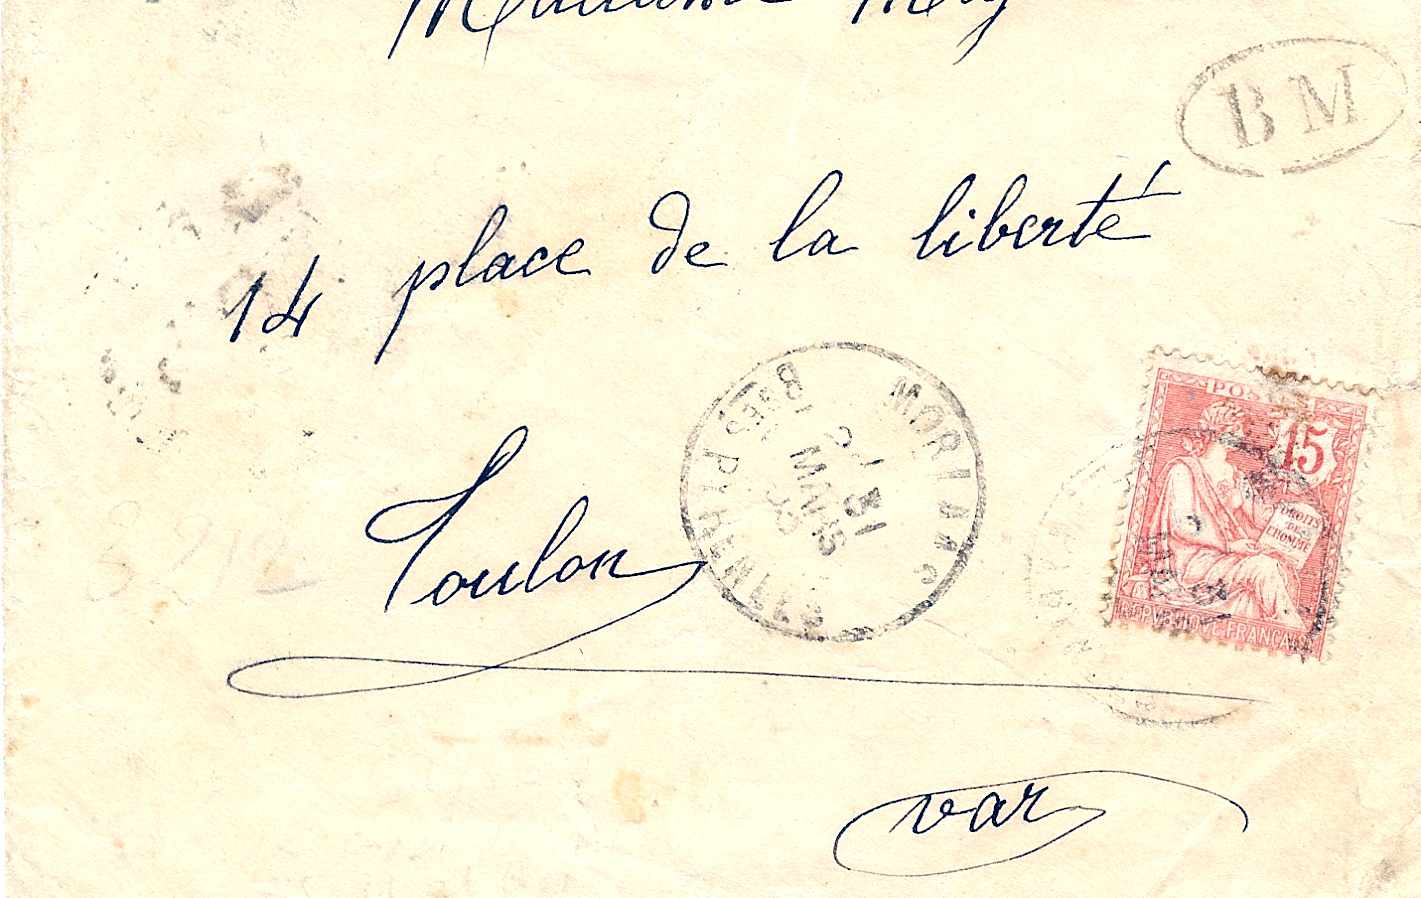 Madame
BM
14 place de la liberté
MORLAAS
BSES PYRENEES
31
MARS
Toulon
POSTES
15
DROITS
DE
L'HOMME
REPVBLIQVE FRANÇAISE
var